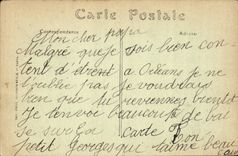 Carte Postale
Correspondance Adresse
Mon cher papa
Malgré que je sois bien con
tent d'etre a Orléans je ne
t'oublie pas je voudrais
bien que tu reviennes bientot
Je t'envoi beaucoup de bai
se sur la carte Ton
petit Georges qui t'aime beau